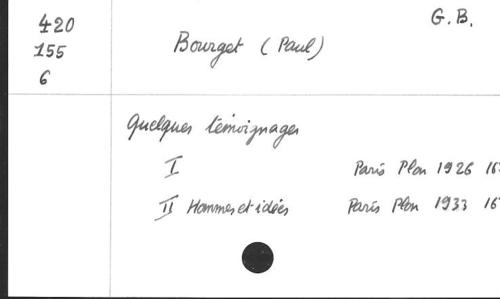 420
155
6
G.B.
Bourget (Paul)
Quelques témoignages
I Paris Plon 1926
II Hommes et idées Paris Plon 1933